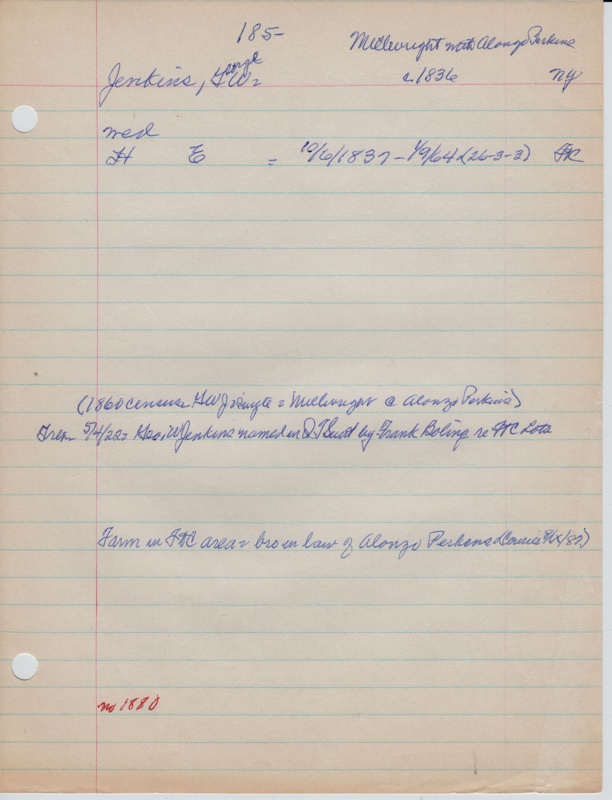 185-
Millwright with Alonzo Perkins
Jenkins, GW = c.1836 NY
med
H E = 10/6/1837 - 1/9/64 (26-3-3) FtC
(1860 census GWJ single = Millwright c Alonzo Perkins)
5/4/22 = Geo. W Jenkins named in Q T Suit by Frank Boling re FtC Lots
Farm in FtC area = bro in law of Alonzo Perkins (Courier
no 1880